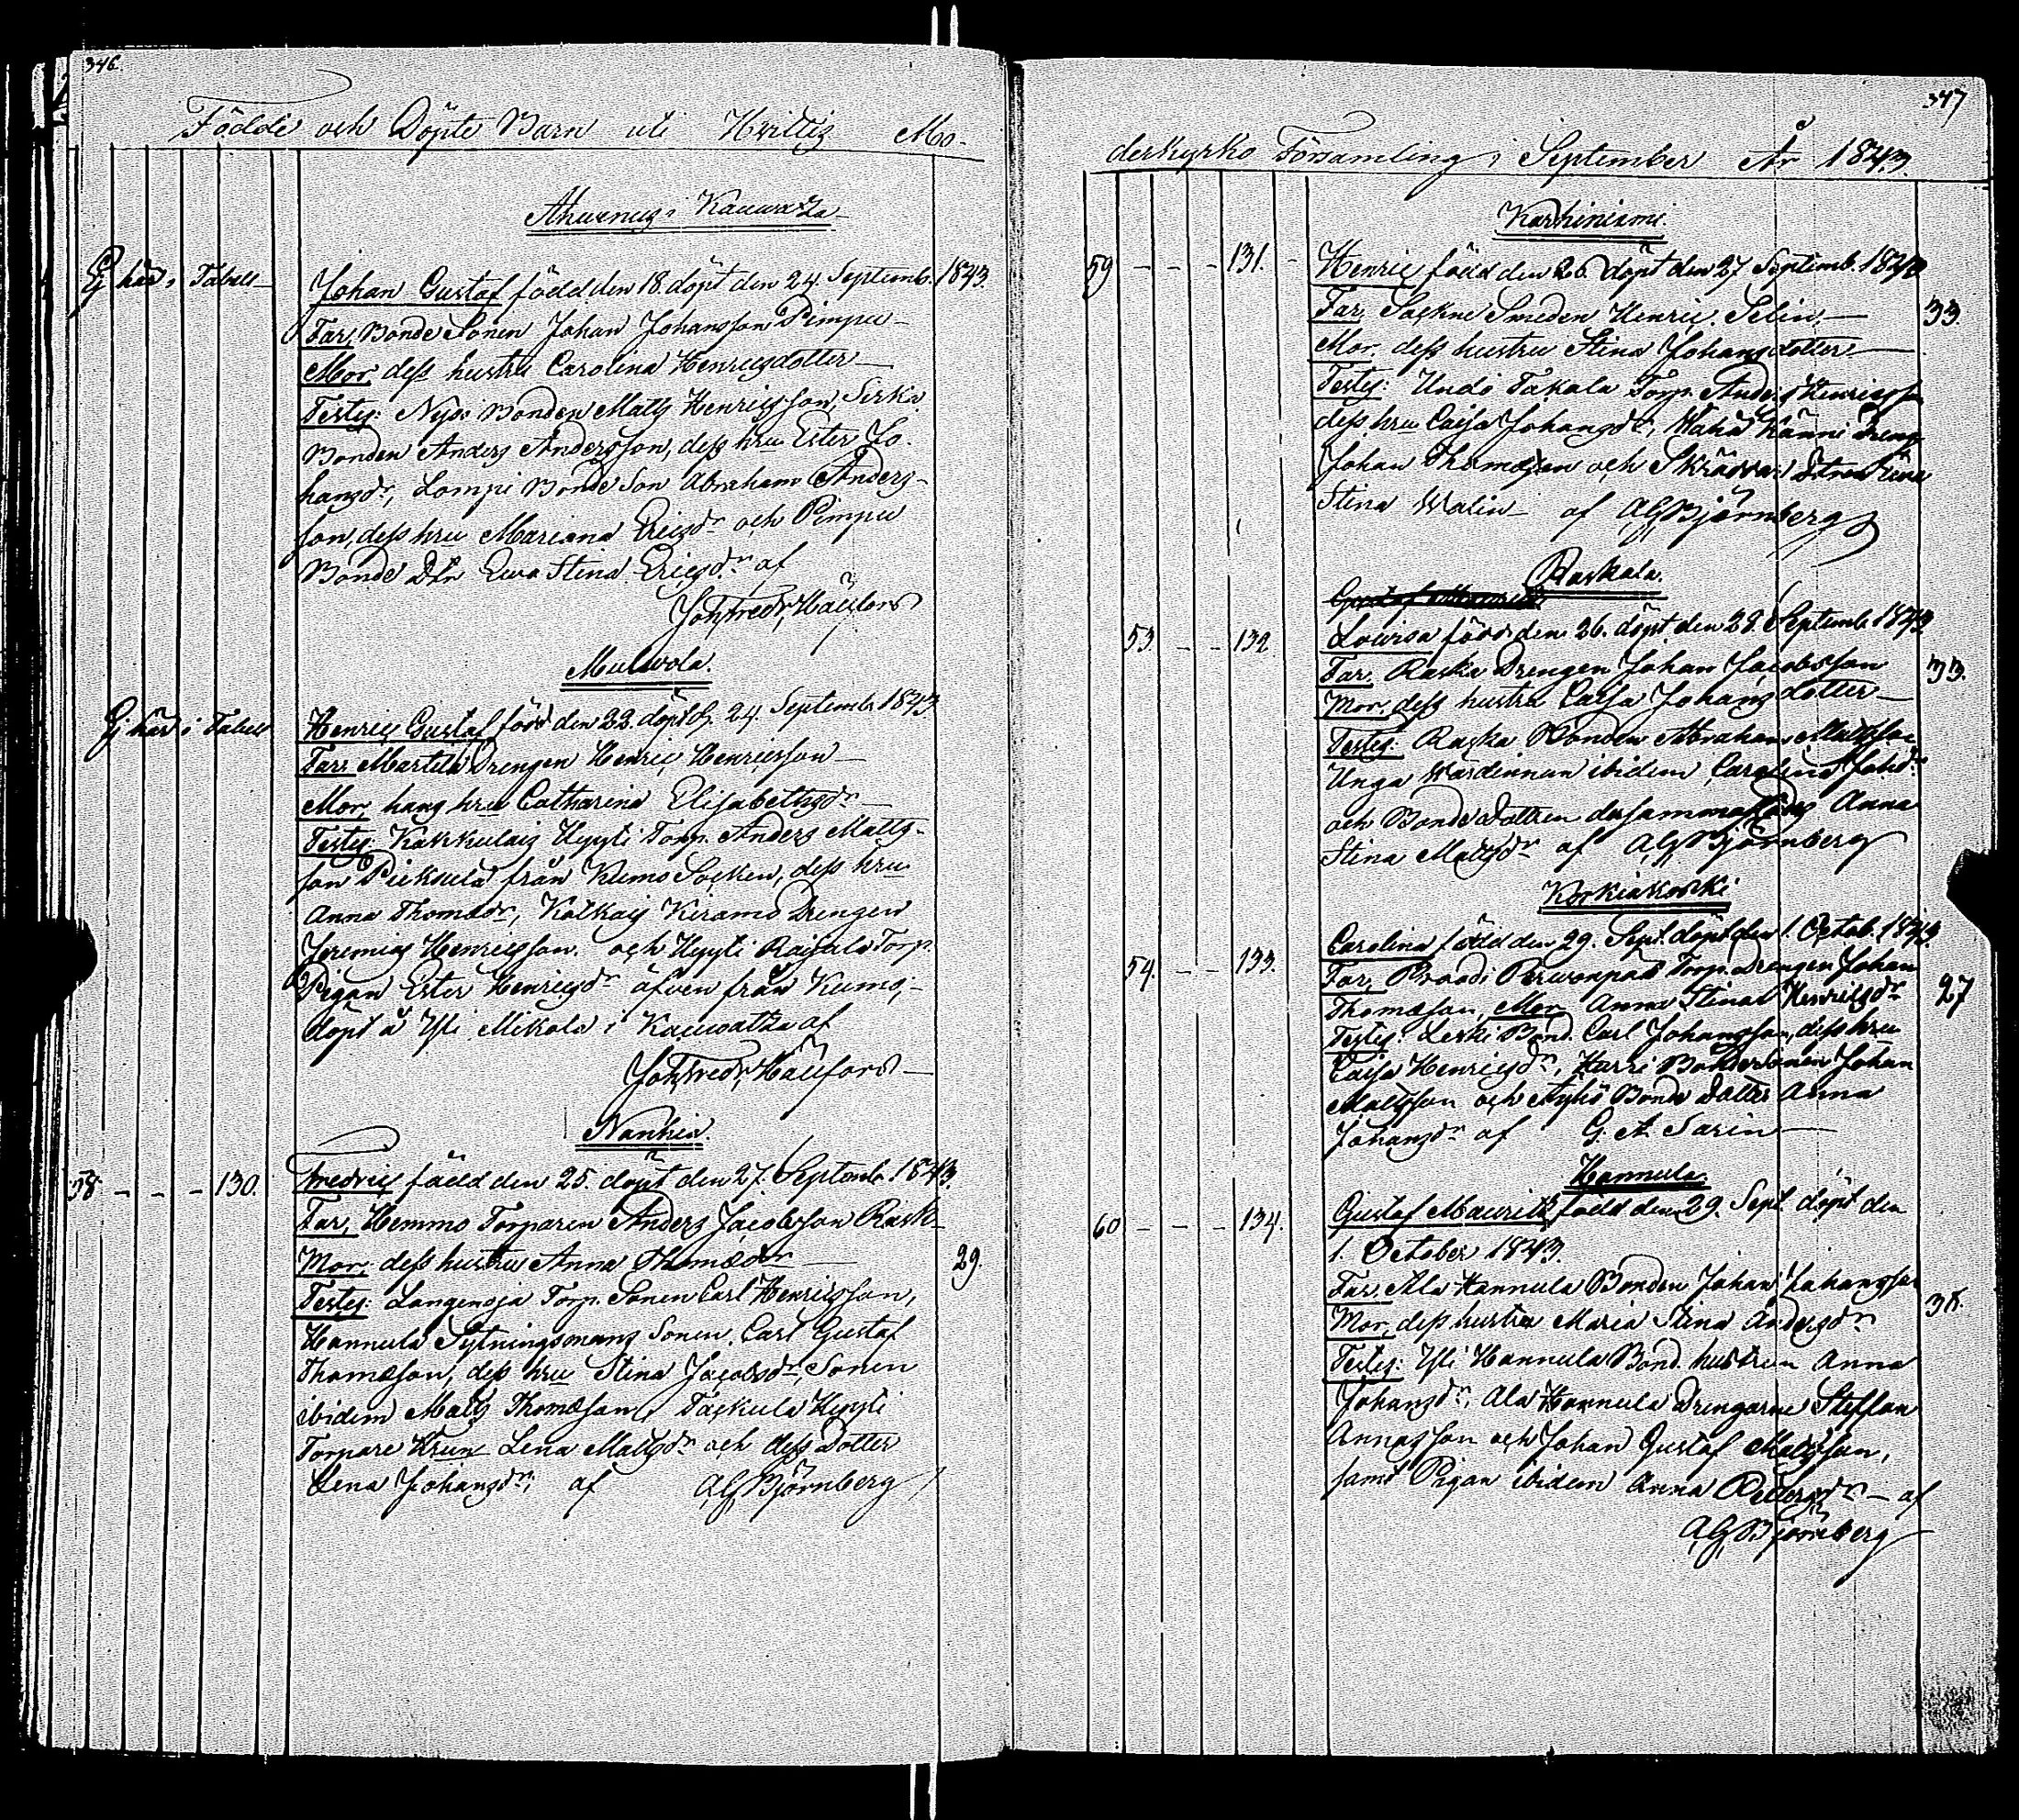 346.
Födde och Döpte Barn uti Hvittis Mo-
Ahvenus i Kauwatza
Ej här i Tabell
Johan Gustaf född den 18. döpt den 24. Septemb. 1843.
Far, Bonde Sonen Johan Johansson Pimpu
Mor, dess hustru Carolina Henricsdotter
Testes: Bonden Matts Henricsson, Sirka
Bonden Anders Andersson, dess hru Ester Jo-
hansdr, Lompi Bonde Son Abraham Anders-
son, dess hru Mariana Ericsdr och Pimpu
Bonde Dtr Ewa Stina Ericsdr af
Joh. Fredr.
Ej här i Tabell
Henric Gustaf född den 22. döpt d. 24. Septembr 1843
Far: Martila Drengen Henric Henricsson
Mor, hans hru Catharina Elisabethsdr
Testes: Kakkulais Hyyti Torp. Anders Matts-
son från Kumo Socken, dess hru
Anna Thomædr, Drengen
Jeremias Henricsson och Hyyti Torp.
Pigan Ester Henricsdr äfven från Kumo,
döpt å Yli Mikola i Kauwatza af
Joh. Fredr.
Nankia.
58 - - - 130.
Fredric född den 25. döpt den 27. Septembr 1843.
Far, Hemmo Torparen Anders Jacobsson Rask
Mor, dess hustru Anna Thomædr
29.
Testes: Langenoja Torp. Sonen Carl Henricsson,
Hannula Sytningsmans Sonen Carl Gustaf
Thomæson, dess hru Stina Jacobsdr, Sonen
ibidem Matts Thomæson, Taskula Hyyti
Torpare Hrun Lena Mattsdr och dess Dotter
Lena Johansdr, af AG Björnberg
347
derkyrko Församling i September År 1843.
Karhiniemi.
59 - - - 131.
Henric född den 26. döpt den 27 Septemb. 1843
Far, Sockne Smeden Henric Selin
33.
Mor, dess hustru Stina Johansdotter
Testes: Undo Takala Torp. Anders Henricsson
dess hru Caisa Johansdr, Känni Dreng
Johan Thomæson och Skräddar
Stina Malin af AG Björnberg
Raskala.
53. - - 132
Lowisa född den 26. döpt den 28. Septemb 1843.
Far, Raska Drengen Johan Jacobsson
33.
Mor, dess hustru Caisa Johansdotter
Testes: Raska Bonden Abraham Mattsson
Unga Wärdinnan ibidem Carolina Johdr
och Bonde dottren dersammastädes Anna
Stina Mattsdr af AG Björnberg
Korkiakoski
54. - - 133.
Carolina född den 29. Sept. döpt den 1. Octob. 1843.
Far, Torp. Drengen Johan
Thomæson, Mor Anna Stina Henricsdr
27
Testes: Leski Bond. Carl Johansson, dess hru
Caisa Henricsdr, Harri Bondesonen Johan
Mattsson och Bonde Dotter Anna
Johansdr af G. A. Sarin
Hannula.
60 - - - 134.
Gustaf Mauritz född den 29. Sept. döpt den
1. October 1843.
Far, Ala Hannula Bonden Johan Johansson
Mor, dess hustru Maria Stina Andersdr
Testes: Yli Hannula Bond. hustrun Anna
Johansdr, Ala Hannula Drengarne Steffan
Annasson och Johan Gustaf Mattsson,
samt Pigan ibidem Anna Pettersdr - af
AG Björnberg